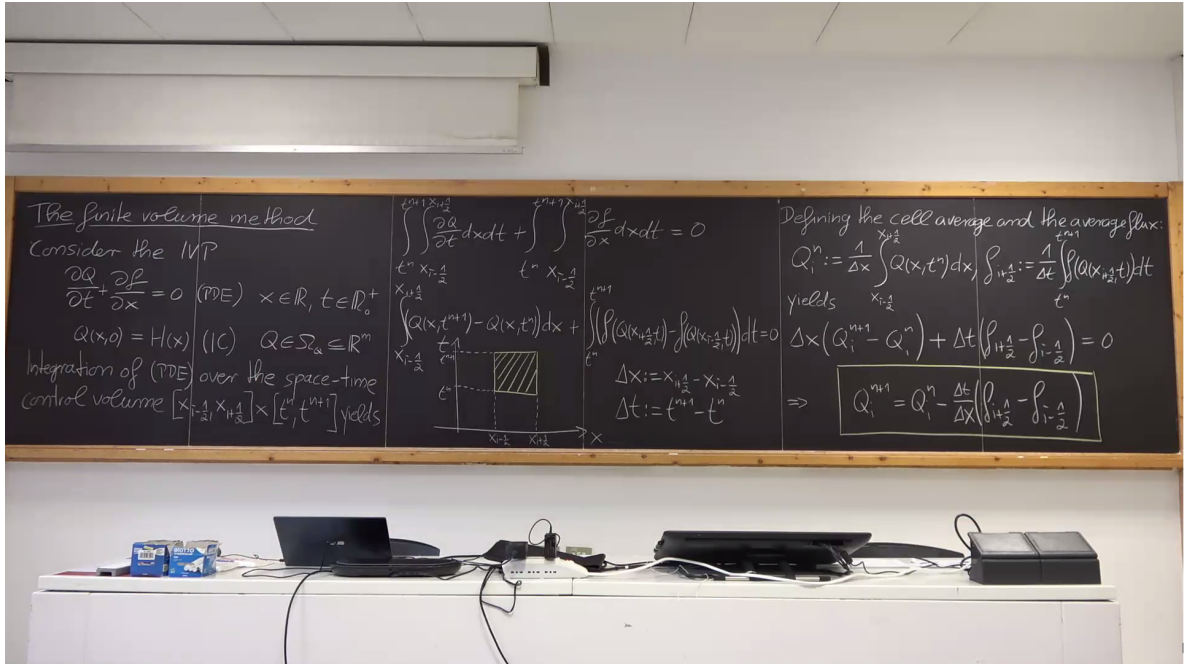 The finite volume method
Consider the IVP
∂Q/∂t + ∂f/∂x = 0 (PDE) x ∈ ℝ, t ∈ ℝ₀⁺
Q(x,0) = H(x) (IC) Q ∈ Ω_Q ⊆ ℝᵐ
Integration of (PDE) over the space-time
control volume [x_{i-1/2}, x_{i+1/2}] × [tⁿ, tⁿ⁺¹] yields
∫_{tⁿ}^{tⁿ⁺¹} ∫_{x_{i-1/2}}^{x_{i+1/2}} ∂Q/∂t dxdt + ∫_{tⁿ}^{tⁿ⁺¹} ∫_{x_{i-1/2}}^{x_{i+1/2}} ∂f/∂x dxdt = 0
∫_{x_{i-1/2}}^{x_{i+1/2}} (Q(x,tⁿ⁺¹) - Q(x,tⁿ)) dx + ∫_{tⁿ}^{tⁿ⁺¹} (f(Q(x_{i+1/2},t)) - f(Q(x_{i-1/2},t))) dt = 0
t
tⁿ⁺¹
tⁿ
x_{i-1/2} x_{i+1/2} x
Δx := x_{i+1/2} - x_{i-1/2}
Δt := tⁿ⁺¹ - tⁿ
Defining the cell average and the average flux:
Q_iⁿ := 1/Δx ∫_{x_{i-1/2}}^{x_{i+1/2}} Q(x,tⁿ) dx, f_{i+1/2} := 1/Δt ∫_{tⁿ}^{tⁿ⁺¹} f(Q(x_{i+1/2},t)) dt
yields
Δx (Q_iⁿ⁺¹ - Q_iⁿ) + Δt (f_{i+1/2} - f_{i-1/2}) = 0
⇒ Q_iⁿ⁺¹ = Q_iⁿ - Δt/Δx (f_{i+1/2} - f_{i-1/2})
GIOTTO